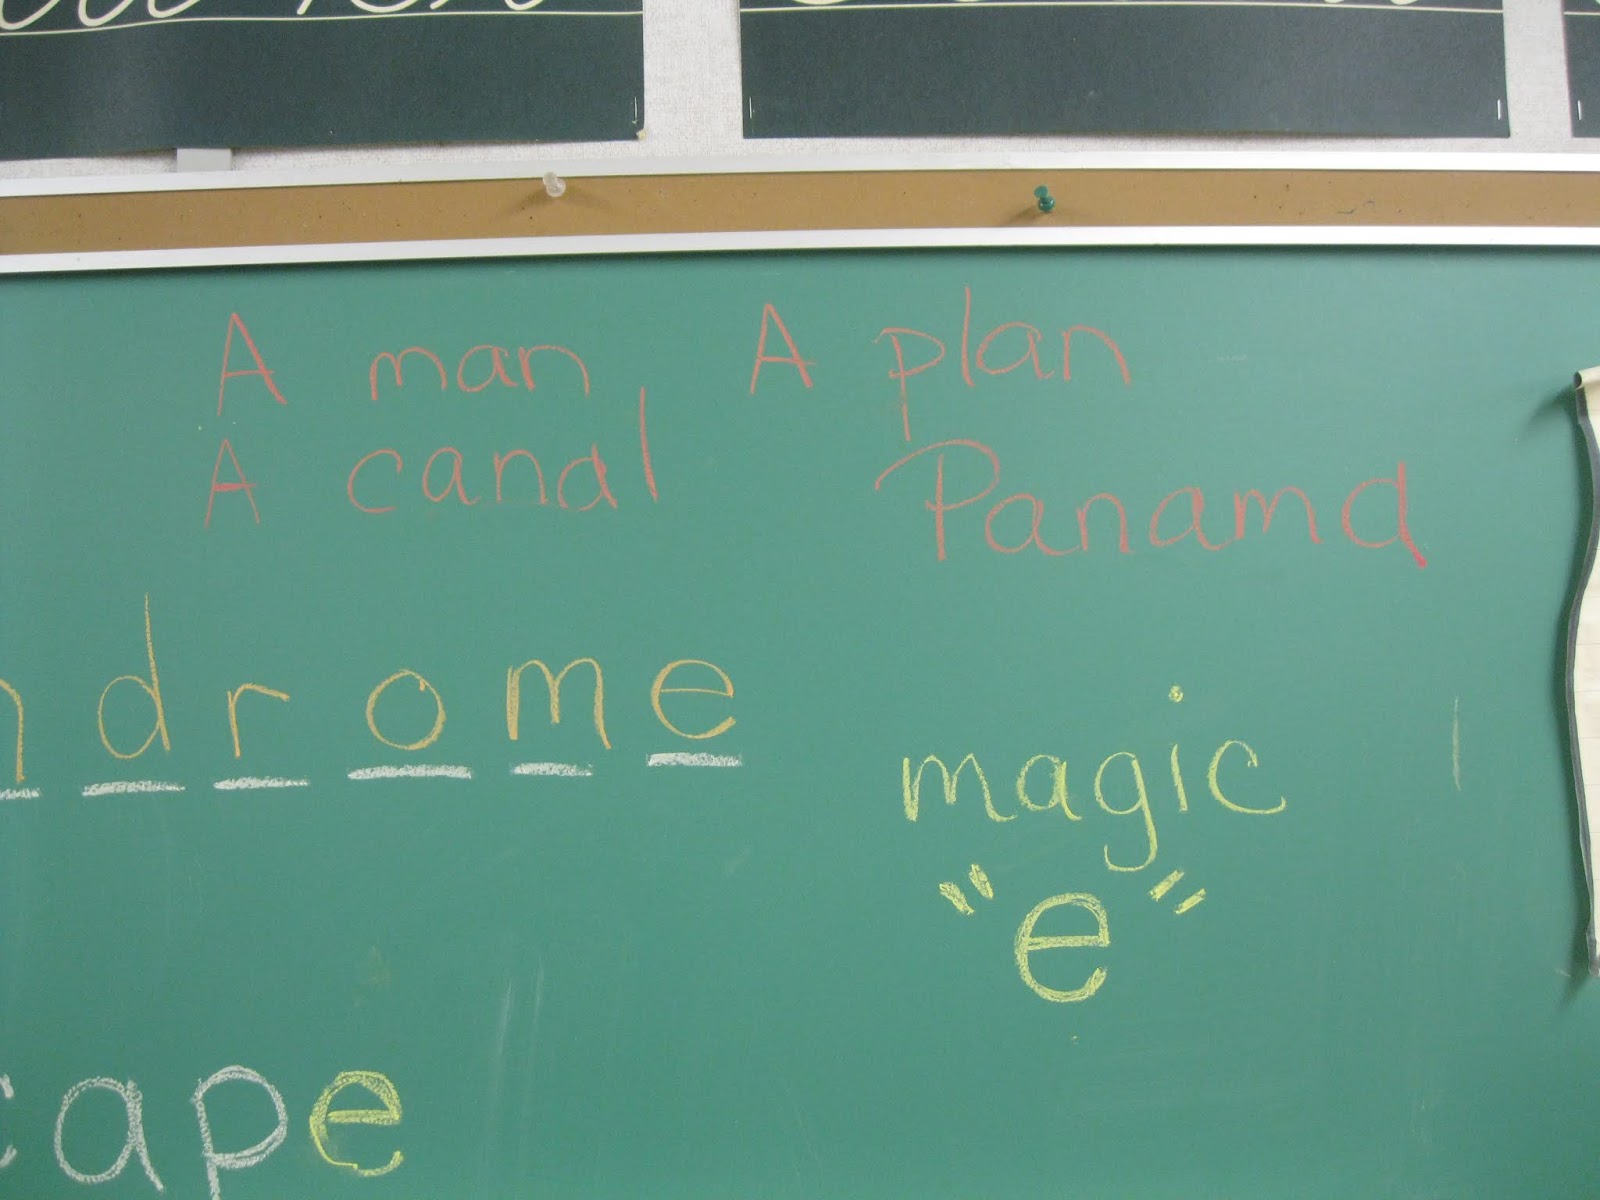 A man A plan
A canal Panama
ndrome
magic
"e"
cape